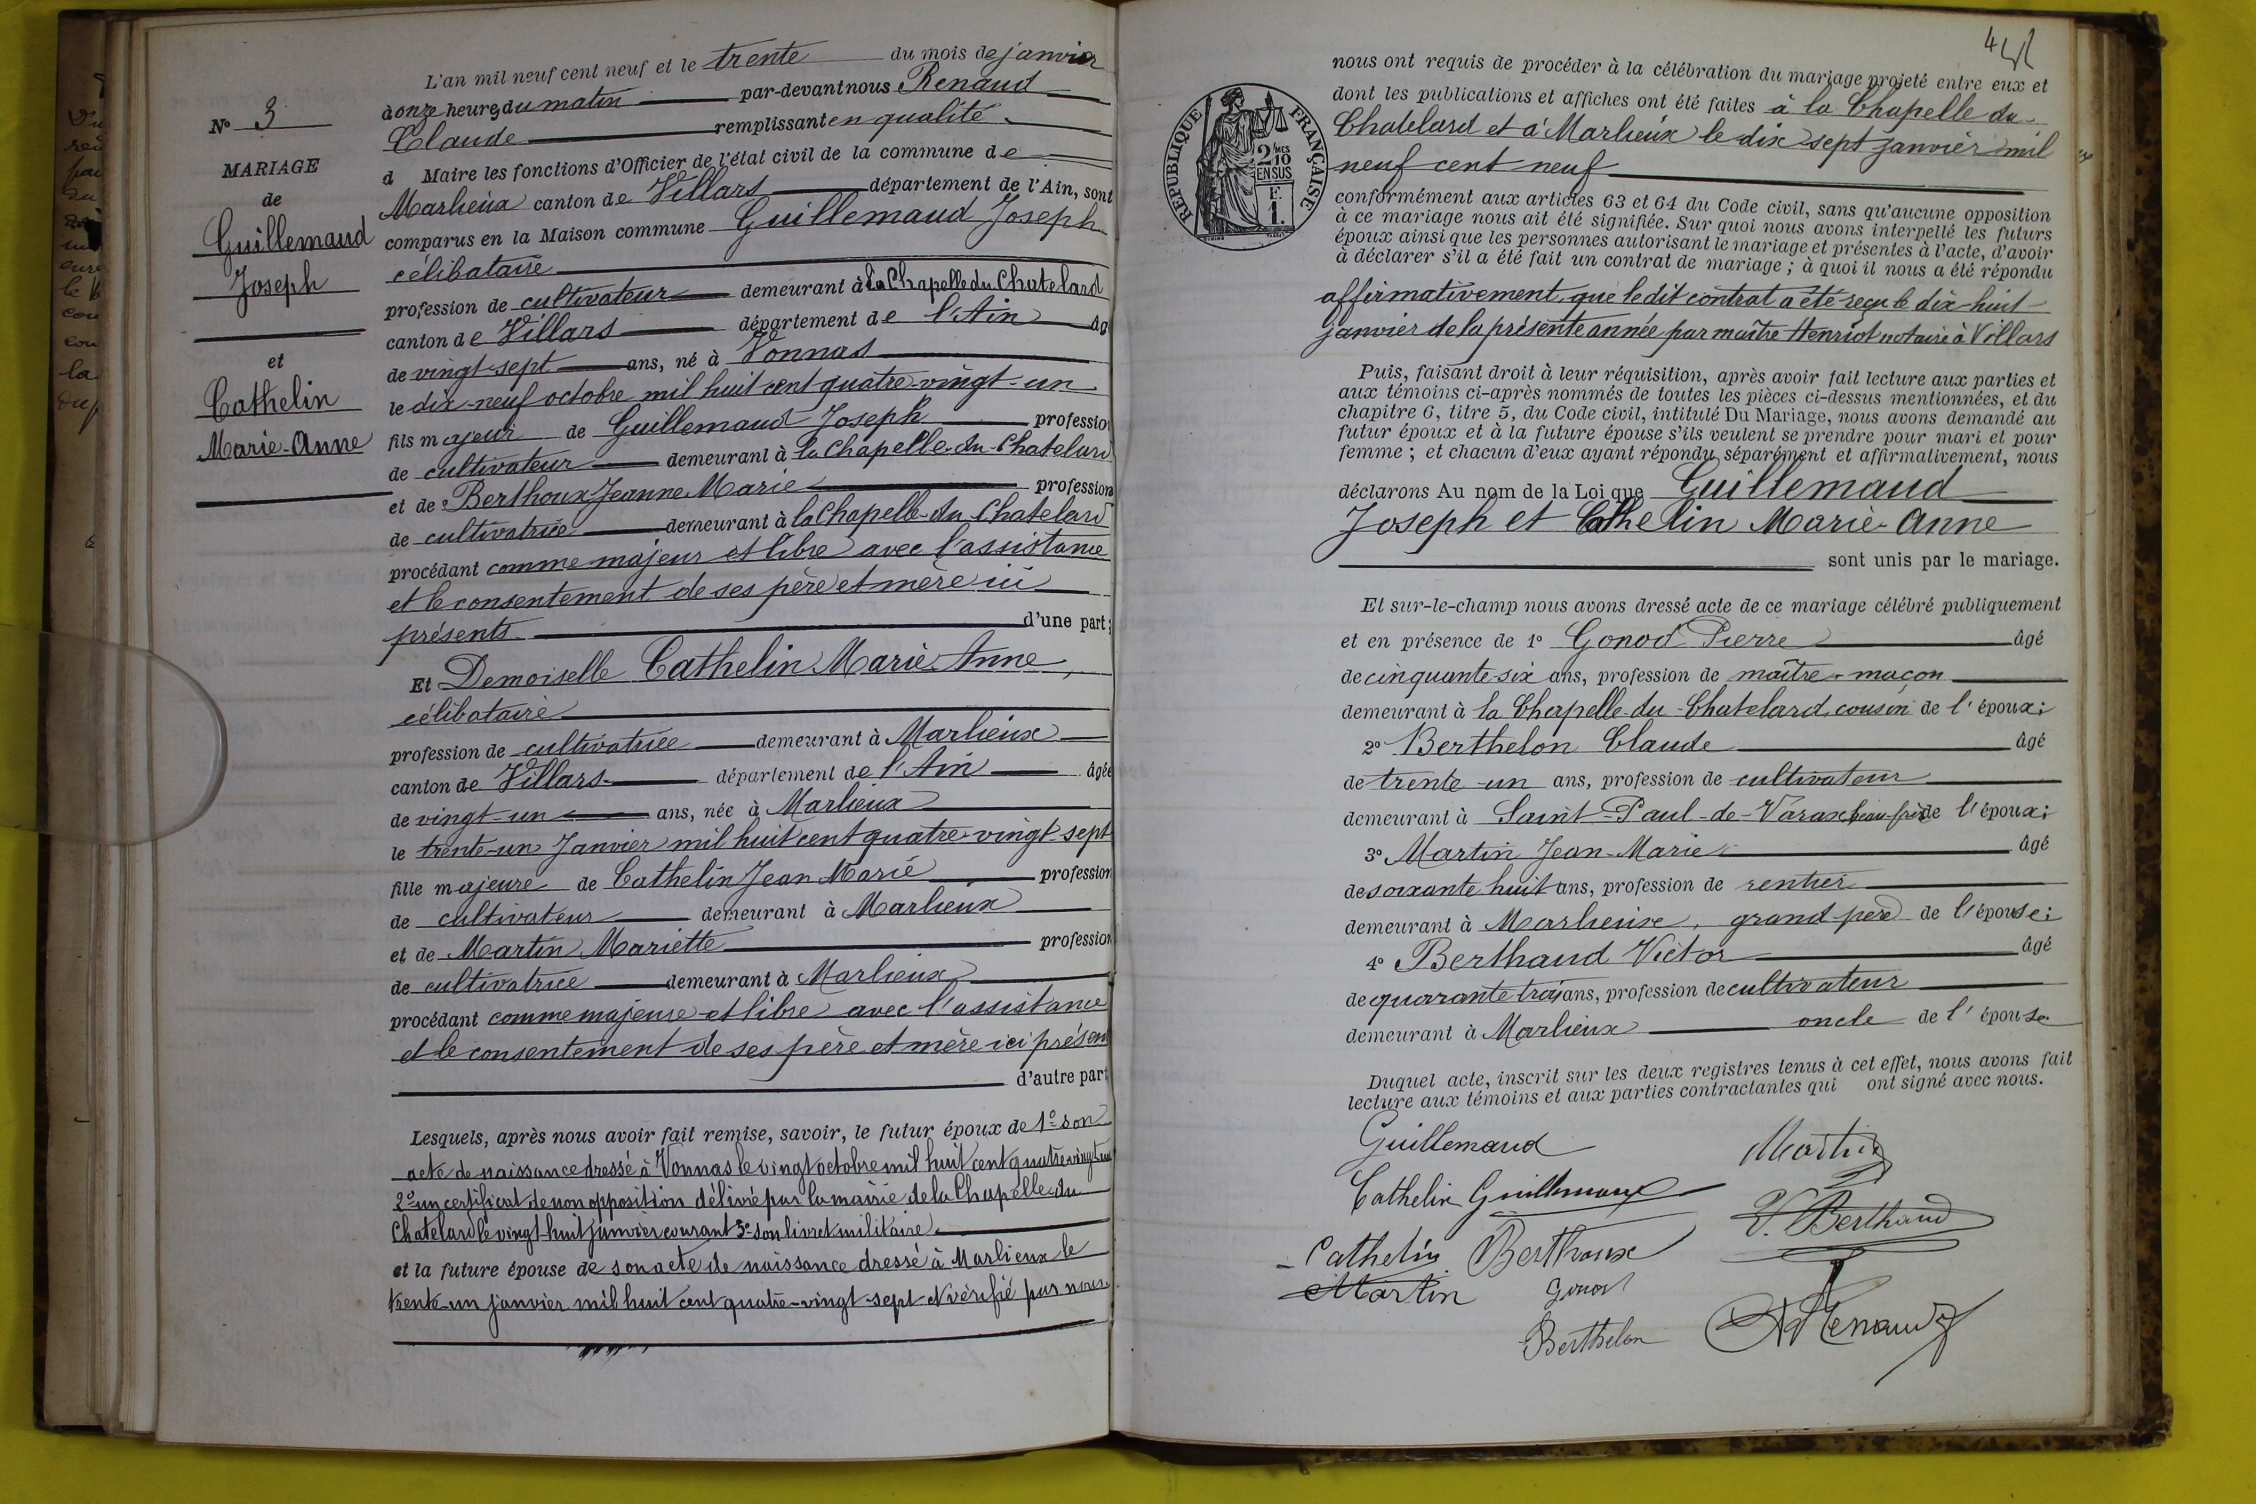 L'an mil neuf cent neuf et le trente du mois de janvier
à onze heures du matin par-devant nous Renaud
Claude remplissant en qualité
d Maire les fonctions d'Officier de l'état civil de la commune de
Marlieux canton de Villars département de l'Ain, sont
comparus en la Maison commune Guillemaud Joseph
célibataire
profession de cultivateur demeurant à La Chapelle du Chatelard
canton de Villars département de l'Ain âgé
de vingt-sept ans, né à Vonnas
le dix-neuf octobre mil huit cent quatre-vingt-un
fils majeur de Guillemaud Joseph profession
de cultivateur demeurant à la Chapelle-du-Chatelard
et de Berthoux Jeanne Marie profession
de cultivatrice demeurant à la Chapelle-du-Chatelard
procédant comme majeur et libre avec l'assistance
et le consentement de ses père et mère ici
présents d'une part;
Et Demoiselle Cathelin Marie Anne,
célibataire
profession de cultivatrice demeurant à Marlieux
canton de Villars département de l'Ain âgée
de vingt-un ans, née à Marlieux
le trente-un Janvier mil huit cent quatre-vingt-sept
fille majeure de Cathelin Jean Marie profession
de cultivateur demeurant à Marlieux
et de Martin Mariette profession
de cultivatrice demeurant à Marlieux
procédant comme majeure et libre avec l'assistance
et le consentement de ses père et mère ici présents
d'autre part
Lesquels, après nous avoir fait remise, savoir, le futur époux de 1º son
acte de naissance dressé à Vonnas le vingt octobre mil huit cent quatre vingt un
2º un certificat de non opposition délivré par la mairie de la Chapelle-du
Chatelard le vingt-huit janvier courant 3º son livret militaire.
et la future épouse de son acte de naissance dressé à Marlieux le
trente-un janvier mil huit cent quatre-vingt-sept et vérifié par nous
Nº 3
MARIAGE
de
Guillemaud
Joseph
et
Cathelin
Marie-Anne
4
nous ont requis de procéder à la célébration du mariage projeté entre eux et
dont les publications et affiches ont été faites à la Chapelle du
Chatelard et à Marlieux le dix-sept janvier mil
neuf cent neuf
RÉPUBLIQUE FRANÇAISE
2/10
EN SUS
E.
1.
conformément aux articles 63 et 64 du Code civil, sans qu'aucune opposition
à ce mariage nous ait été signifiée. Sur quoi nous avons interpellé les futurs
époux ainsi que les personnes autorisant le mariage et présentes à l'acte, d'avoir
à déclarer s'il a été fait un contrat de mariage; à quoi il nous a été répondu
affirmativement, que ledit contrat a été reçu le dix-huit
janvier de la présente année par maître Henriot notaire à Villars
Puis, faisant droit à leur réquisition, après avoir fait lecture aux parties et
aux témoins ci-après nommés de toutes les pièces ci-dessus mentionnées, et du
chapitre 6, titre 5, du Code civil, intitulé Du Mariage, nous avons demandé au
futur époux et à la future épouse s'ils veulent se prendre pour mari et pour
femme; et chacun d'eux ayant répondu séparément et affirmativement, nous
déclarons Au nom de la Loi que Guillemaud
Joseph et Cathelin Marie-Anne
sont unis par le mariage.
Et sur-le-champ nous avons dressé acte de ce mariage célébré publiquement
et en présence de 1º Gonod Pierre âgé
de cinquante-six ans, profession de maître-maçon
demeurant à la Chapelle-du-Chatelard, cousin de l'époux;
2º Berthelon Claude âgé
de trente-un ans, profession de cultivateur
demeurant à Saint-Paul-de-Varax beau-frère de l'époux;
3º Martin Jean-Marie âgé
de soixante huit ans, profession de rentier
demeurant à Marlieux, grand-père de l'épouse;
4º Berthaud Victor âgé
de quarante trois ans, profession de cultivateur
demeurant à Marlieux oncle de l'épouse
Duquel acte, inscrit sur les deux registres tenus à cet effet, nous avons fait
lecture aux témoins et aux parties contractantes qui ont signé avec nous.
Guillemaud Martin
Cathelin Guillemaud
V. Berthaud
Cathelin Berthoux
Martin Gonod
Berthelon Renaud